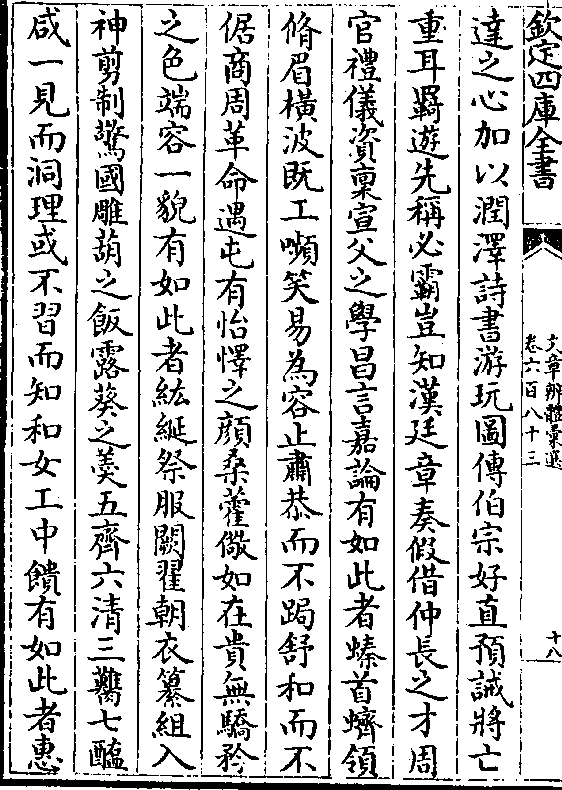 欽定四庫全書
文章辨體彙選
卷六百八十三
十八
達之心加以潤澤詩書游玩圖傳伯宗好直預誡將亡
重耳羇遊先稱必霸豈知漢廷章奏假借仲長之才周
官禮儀資稟宣父之學昌言嘉論有如此者螓首蠐領
脩眉橫波既工嚬笑易為容止肅恭而不跼舒和而不
倨商周革命遇屯有怡懌之顔桑藿儆如在貴無驕矜
之色端容一貌有如此者紘綖祭服闕翟朝衣纂組入
神剪制驚國雕葫之飯露葵之羮五齊六清三臡七醢
咸一見而洞理或不習而知和女工中饋有如此者惠